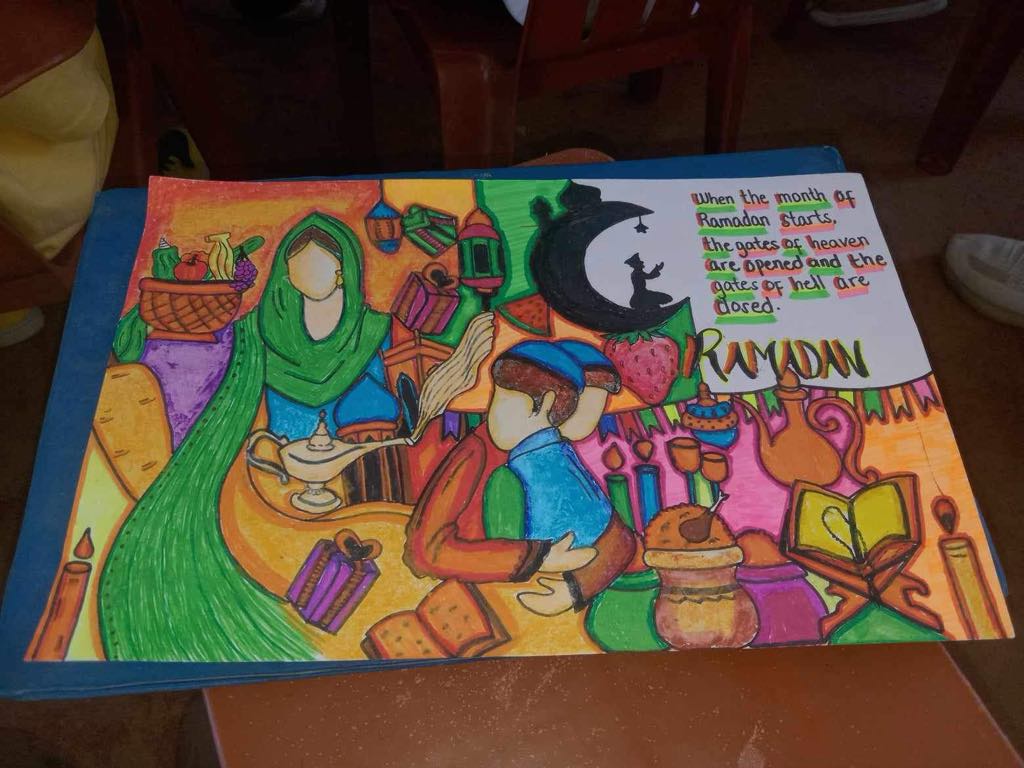 When the month of
Ramadan starts,
the gates of heaven
are opened and the
gates of hell are
closed.
RAMADAN